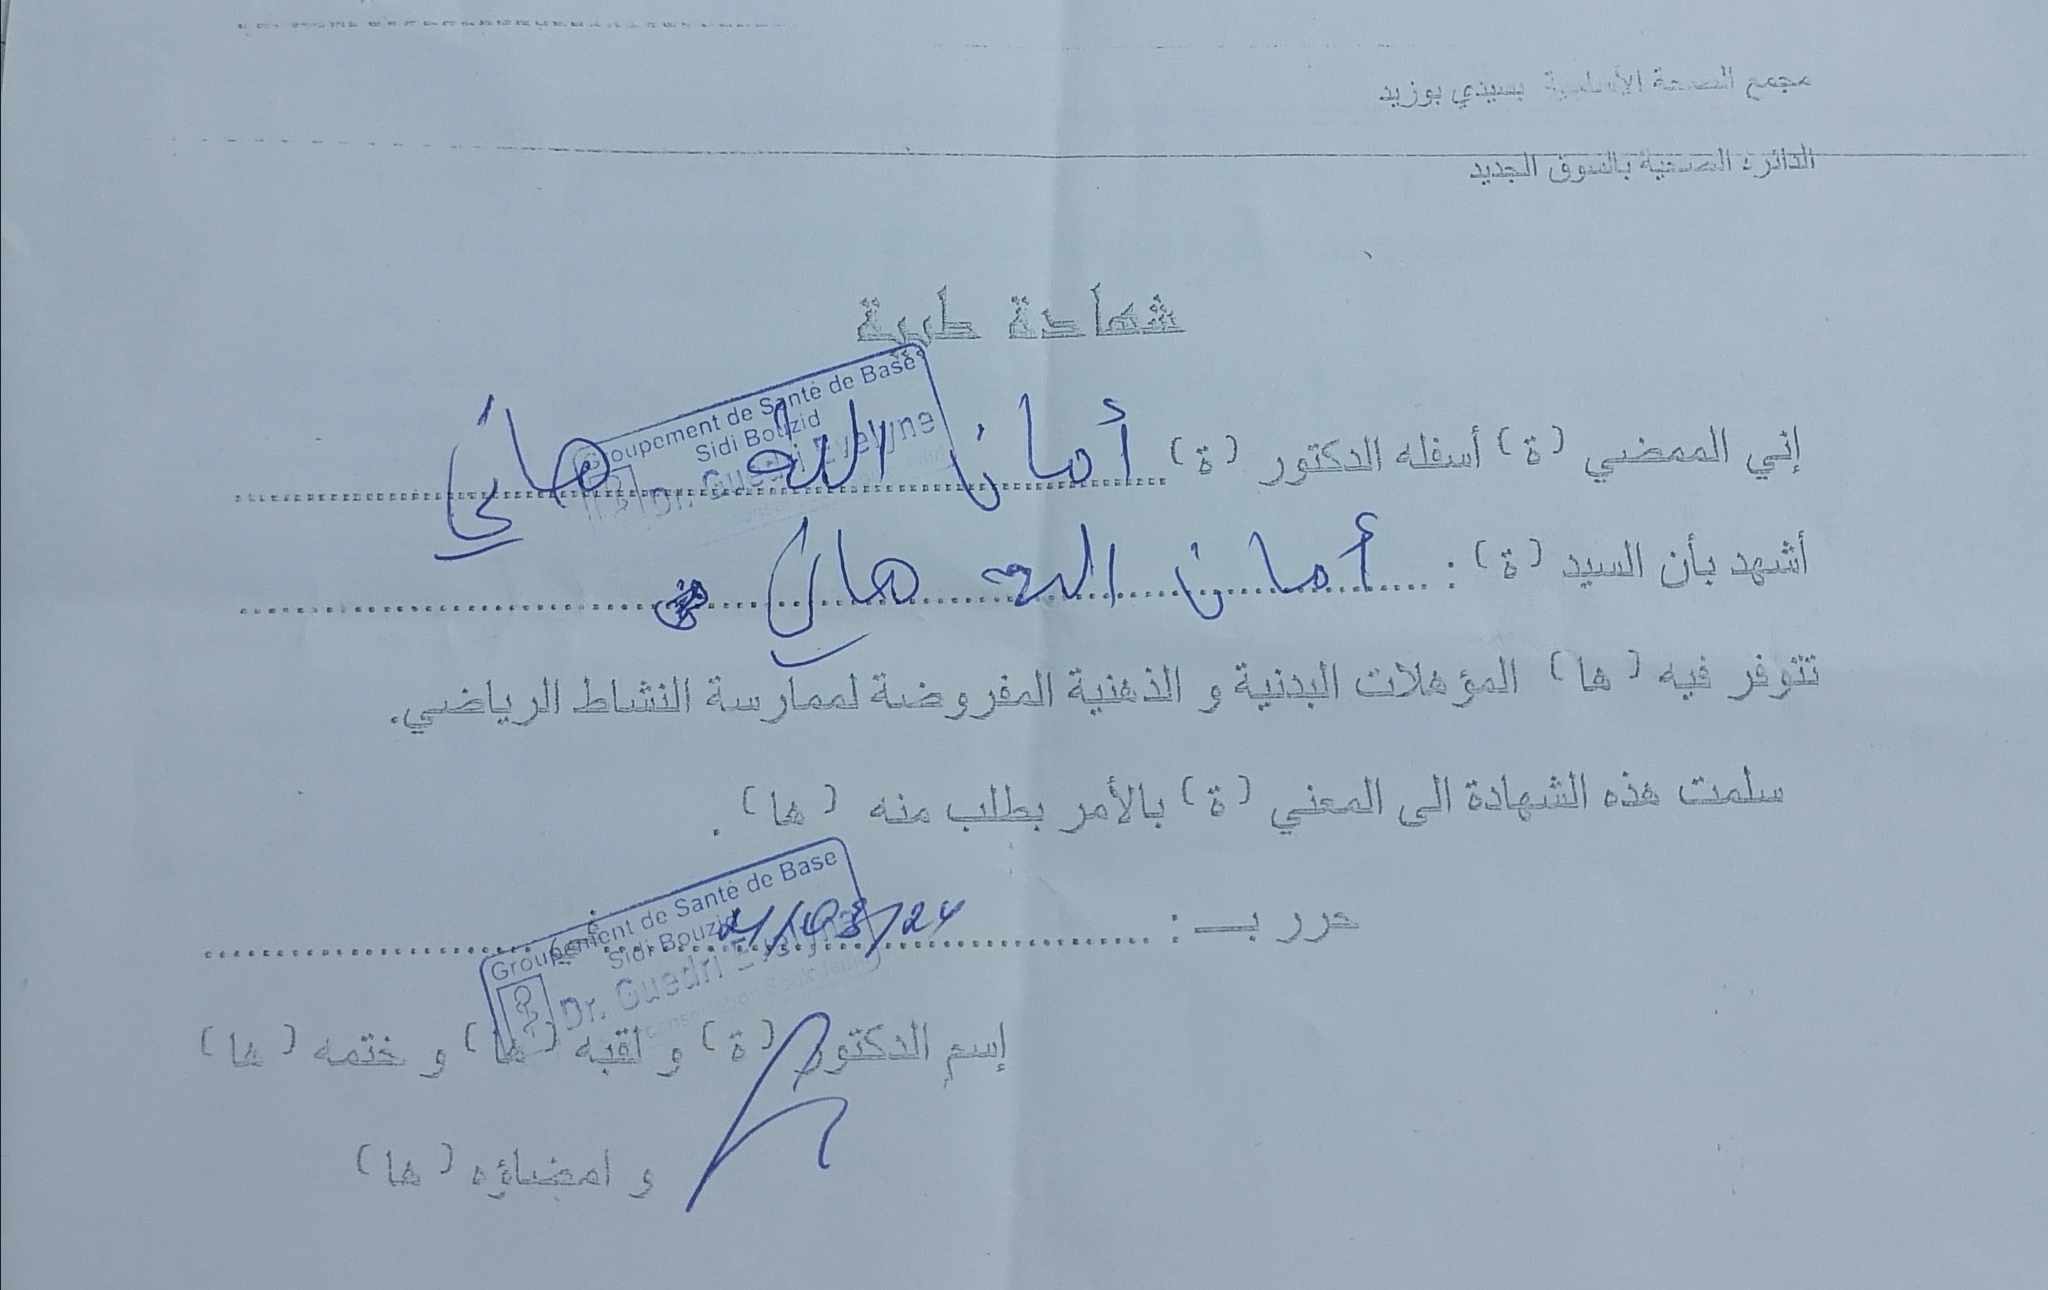 مجمع الصحة الأساسية بسيدي بوزيد
الدائرة الصحية بالسوق الجديد
شهادة طبية
Groupement de Santé de Base
Sidi Bouzid
Dr. Guedri Evelyne
إني الممضي (ة) أسفله الدكتور (ة) أمان الله هاني
أشهد بأن السيد (ة) : أمان الله هاني
تتوفر فيه (ها) المؤهلات البدنية و الذهنية المفروضة لممارسة النشاط الرياضي.
سلمت هذه الشهادة الى المعني (ة) بالأمر بطلب منه (ها) .
حرر بـ : في
Groupement de Santé de Base
Sidi Bouzid
Dr. Guedri
إسم الدكتور (ة) و لقبه (ها) و ختمه (ها)
و امضاؤه (ها)